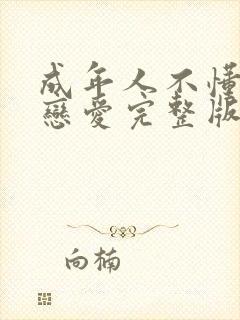 成年人不懂
戀愛完整版
向楠